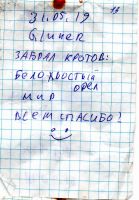 31.05.19
Gluher
ЗАБРАЛ КРОТОВ:
БЕЛОХВОСТЫЙ
ОРЁЛ
МИР
ВСЕМ СПАСИБО!